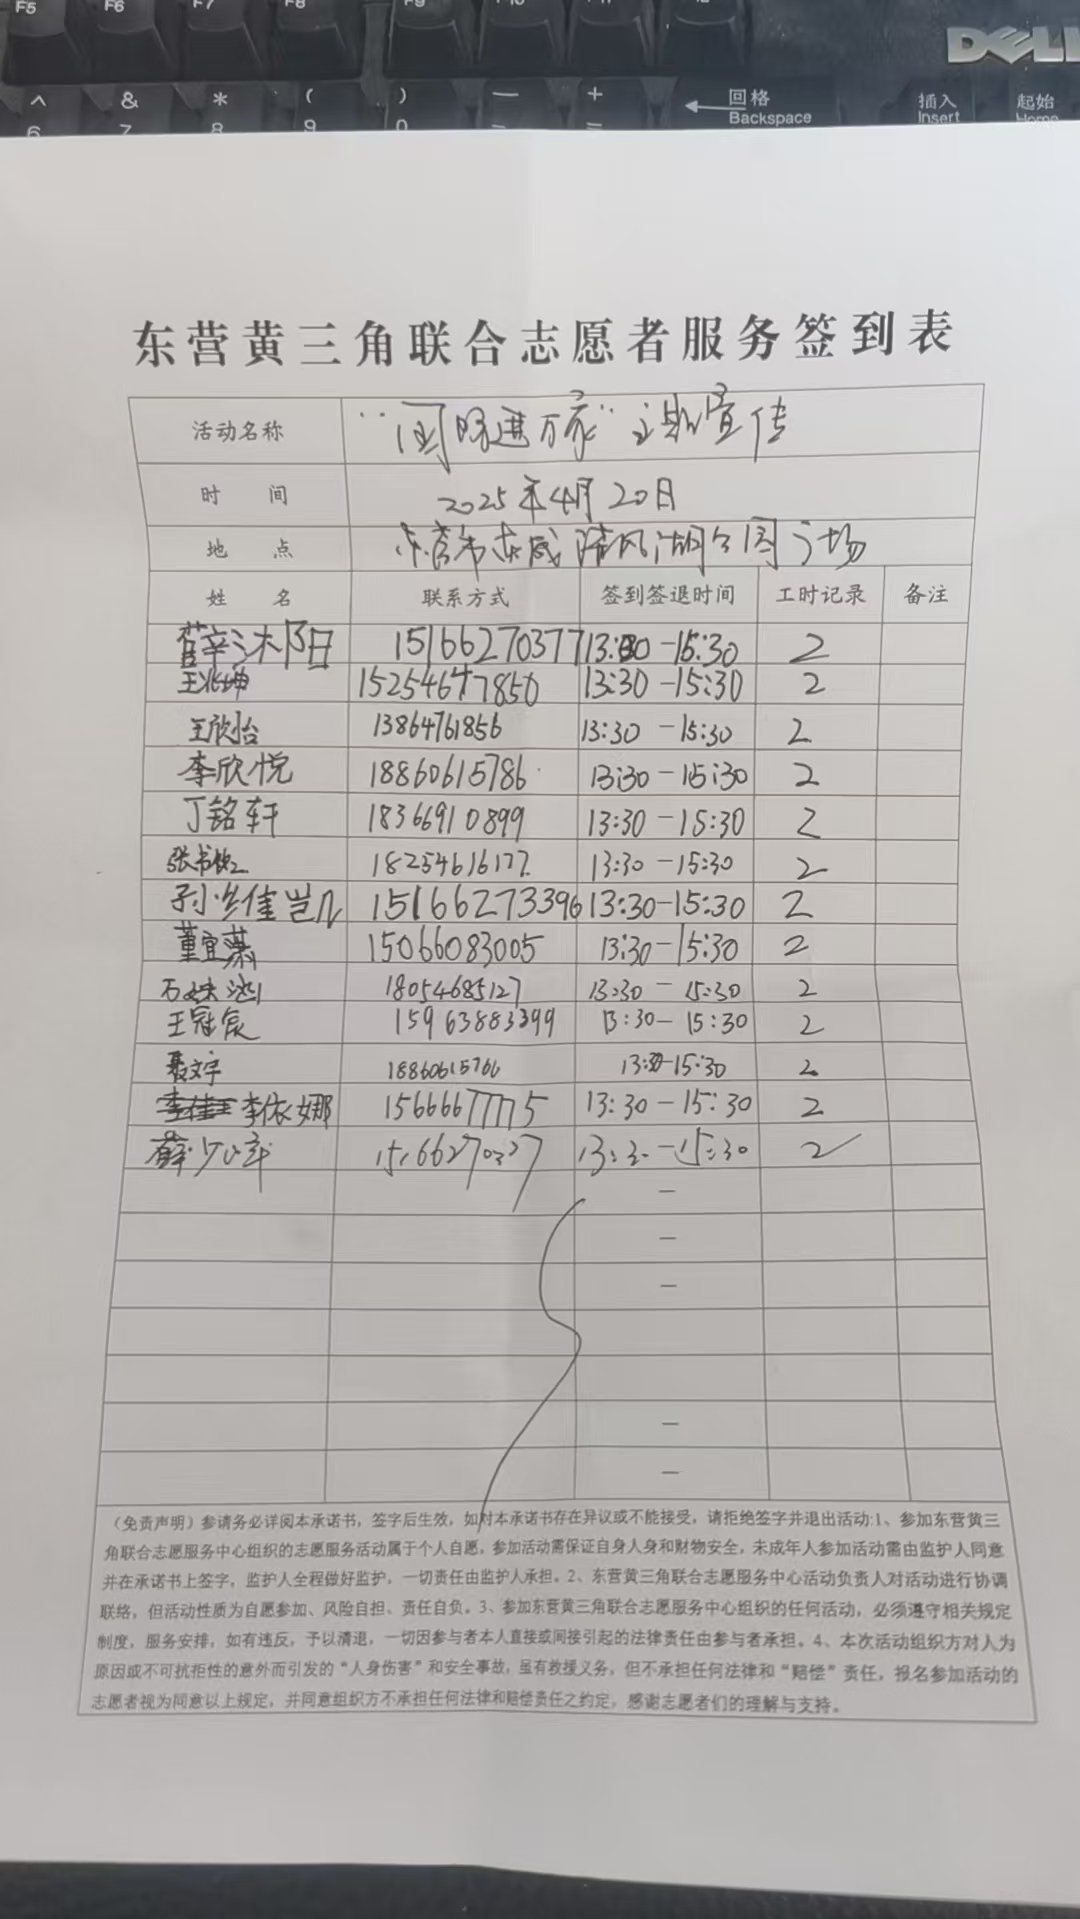 F5 F6 F7 F8 F9 F10 F11 F12
DELL
^ & * ( ) — + 回格 插入 起始
6 7 8 9 0 - = Backspace Insert Home
东营黄三角联合志愿者服务签到表
活动名称 "国际进万家"主题宣传
时 间 2025年4月20日
地 点 东营市东城清风湖公园广场
姓 名 联系方式 签到签退时间 工时记录 备注
薛沐阳 15166270377 13:30-15:30 2
王兆坤 15254647850 13:30-15:30 2
王欣怡 13864761856 13:30-15:30 2
李欣悦 18860615786 13:30-15:30 2
丁铭轩 18366910899 13:30-15:30 2
张书 18254616177 13:30-15:30 2
孙 佳岂几 15166273396 13:30-15:30 2
董宜萧 15066083005 13:30-15:30 2
石 18054685127 13:30-15:30 2
王冠宸 15963883399 13:30-15:30 2
聂文宇 18860615766 13:30-15:30 2
李佳 李依娜 15666677775 13:30-15:30 2
薛少军 15166270327 13:30-15:30 2
—
—
—
—
—
（免责声明）参请务必详阅本承诺书，签字后生效，如对本承诺书存在异议或不能接受，请拒绝签字并退出活动:1、参加东营黄三
角联合志愿服务中心组织的志愿服务活动属于个人自愿，参加活动需保证自身人身和财物安全，未成年人参加活动需由监护人同意
并在承诺书上签字，监护人全程做好监护，一切责任由监护人承担。2、东营黄三角联合志愿服务中心活动负责人对活动进行协调
联络，但活动性质为自愿参加、风险自担、责任自负。3、参加东营黄三角联合志愿服务中心组织的任何活动，必须遵守相关规定
制度，服务安排，如有违反，予以清退，一切因参与者本人直接或间接引起的法律责任由参与者承担。4、本次活动组织方对人为
原因或不可抗拒性的意外而引发的“人身伤害”和安全事故，虽有救援义务，但不承担任何法律和“赔偿”责任，报名参加活动的
志愿者视为同意以上规定，并同意组织方不承担任何法律和赔偿责任之约定，感谢志愿者们的理解与支持。